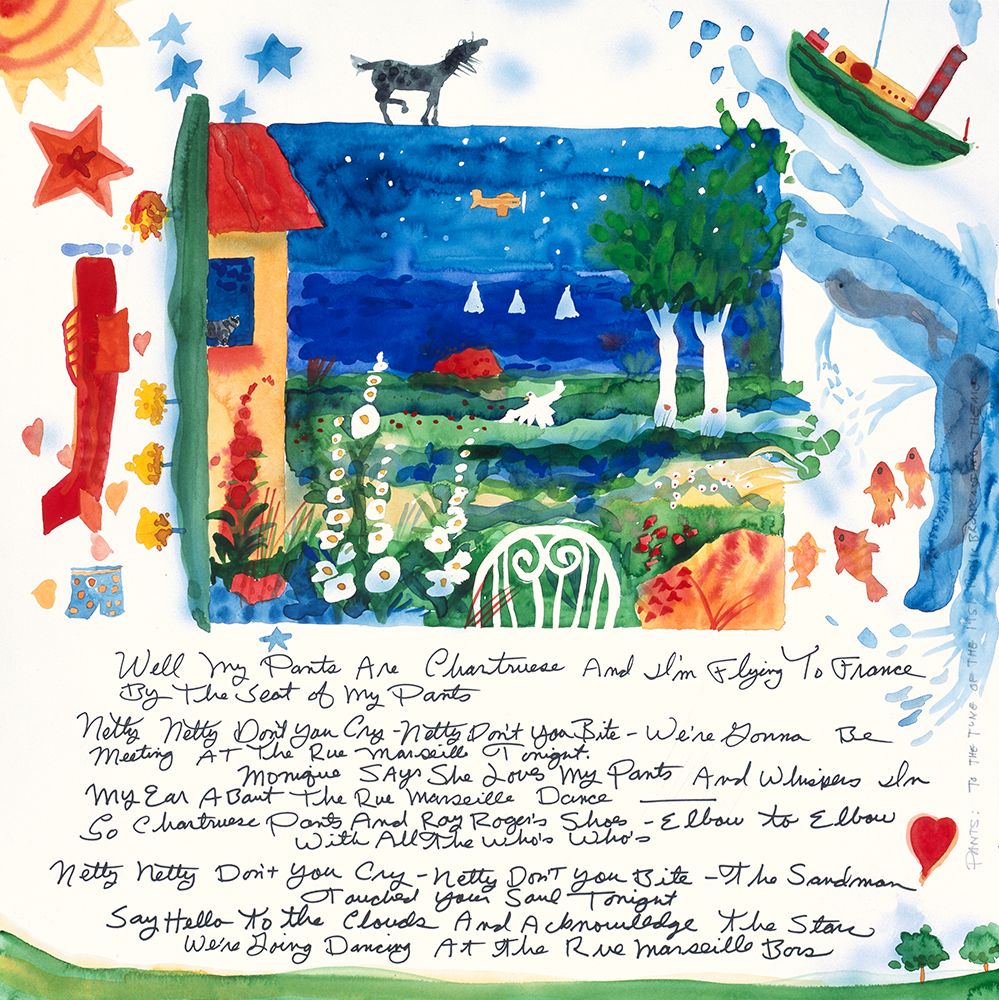 Well My Pants Are Chartruese And I'm Flying To France
By The Seat of My Pants
Netty Netty Don't You Cry - Netty Don't You Bite - We're Gonna Be
Meeting At The Rue Marseille Tonight.
Monique Says She Loves My Pants And Whispers In
My Ear About The Rue Marseille Dance
So Chartruese Pants And Roy Roger's Shoes - Elbow to Elbow
With All The Who's Who's
Netty Netty Don't You Cry - Netty Don't You Bite - The Sandman
Touched Your Soul Tonight
Say Hello to the Clouds And Acknowledge The Stars
We're Going Dancing At The Rue Marseille Bars
PANTS: TO THE TUNE OF THE PINK THEME